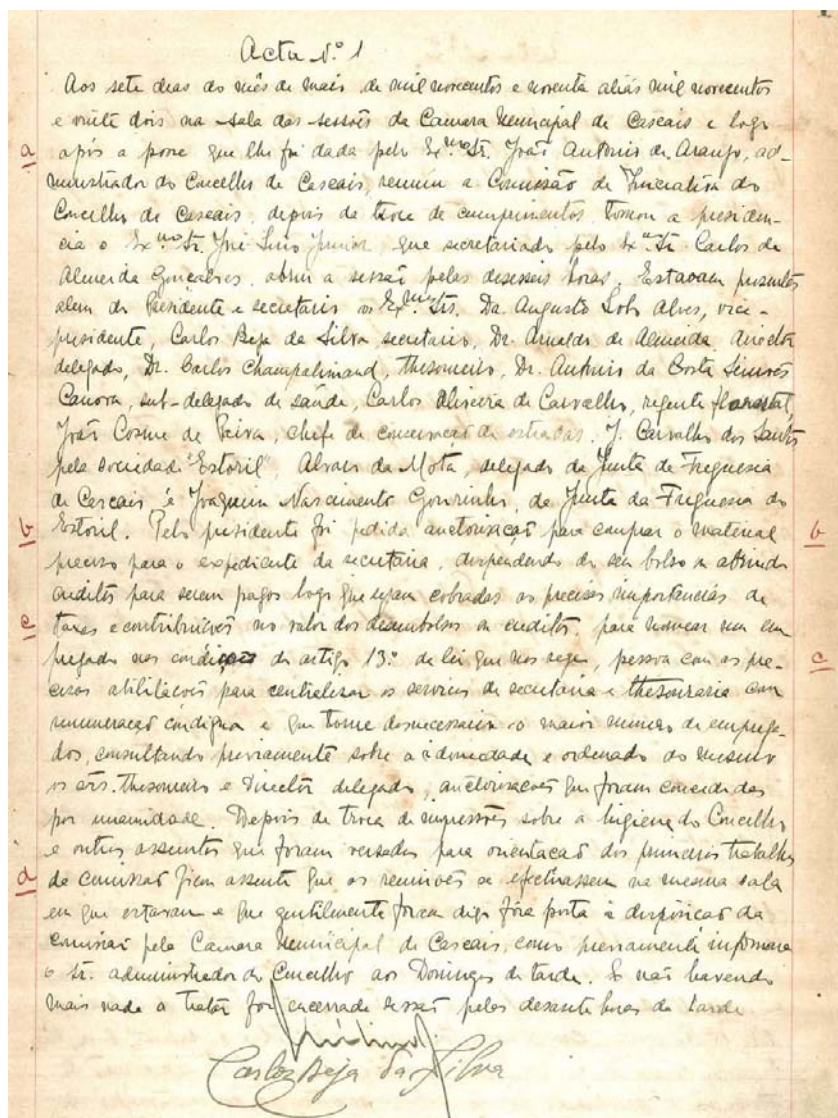 Acta N.º 1
Aos sete dias do mês de maio de mil novecentos e noventa aliás mil novecentos
e vinte dois na sala das sessões da Camara Municipal de Cascais e logo
a
após a posse que lhe foi dada pelo Ex.mo Sr. João Antonio de Araujo, ad-
ministrador do Concelho de Cascais, reuniu a Comissão de Iniciativa do
Concelho de Cascais, depois da troca de cumprimentos. Tomou a presiden-
cia o Ex.mo Sr. José Junior, que secretariado pelo Ex.mo Sr. Carlos de
Almeida Gonçalves, abriu a sessão pelas deseseis horas. Estavam presentes
alem do Presidente e secretario os Ex.mos Srs. Dr. Augusto Lobo Alves, vice-
presidente, Carlos Beja da Silva secretario, Dr. Arnaldo de Almeida, director
delegado, Dr. Carlos Champalimaud, thesoureiro, Dr. Antonio da Costa Simões
Canova, sub-delegado de saúde, Carlos Oliveira de Carvalho, regente florestal,
João Cosme de Paiva, chefe de conservação de estradas, J. Carvalho dos Santos
pela sociedade "Estoril", Alvaro da Mota, delegado da Junta de Freguesia
de Cascais e Joaquim Nascimento Gourinho, da Junta da Freguesia do
b
Estoril. Pelo presidente foi pedida auctorisação para comprar o material
b
preciso para o expediente da secretaria, dispendendo do seu bolso ou abrindo
creditos para serem pagos logo que sejam cobradas as precisas importancias de
c
taxas e contribuições no valor dos desembolsos ou creditos, para nomear um em
pregado nas condições do artigo 13.º da lei que nos rege, pessoa com as pre-
c
cisas abilitações para centralisar os serviços de secretaria e thesouraria com
remuneração condigna e que torne desnecessario o maior numero de emprega-
dos, consultando previamente sobre a idoneidade e ordenado do mesmo
os srs. thesoureiro e director delegado, auctorisações que foram concedidas
por unanimidade. Depois de troca de impressões sobre a higiene do Concelho
e outros assuntos que foram versados para orientação dos primeiros trabalhos
d
da comissão ficou assente que as reuniões se efectuassem na mesma sala
em que estavam e que gentilmente foram digo fôra posta á disposição da
comissão pela Camara Municipal de Cascais, como previamente informara
o Sr. administrador do Concelho aos Domingos de tarde. E não havendo
mais nada a tratar foi encerrada sessão pelas desasete horas da tarde
Carlos Beja da Silva